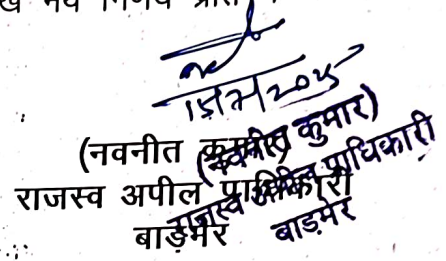 नवे निर्णय
(नवनीत कुमार)
राजस्व अपील प्राधिकारी
बाड़मेर
(नवनीत कुमार)
राजस्व अपील प्राधिकारी
बाड़मेर